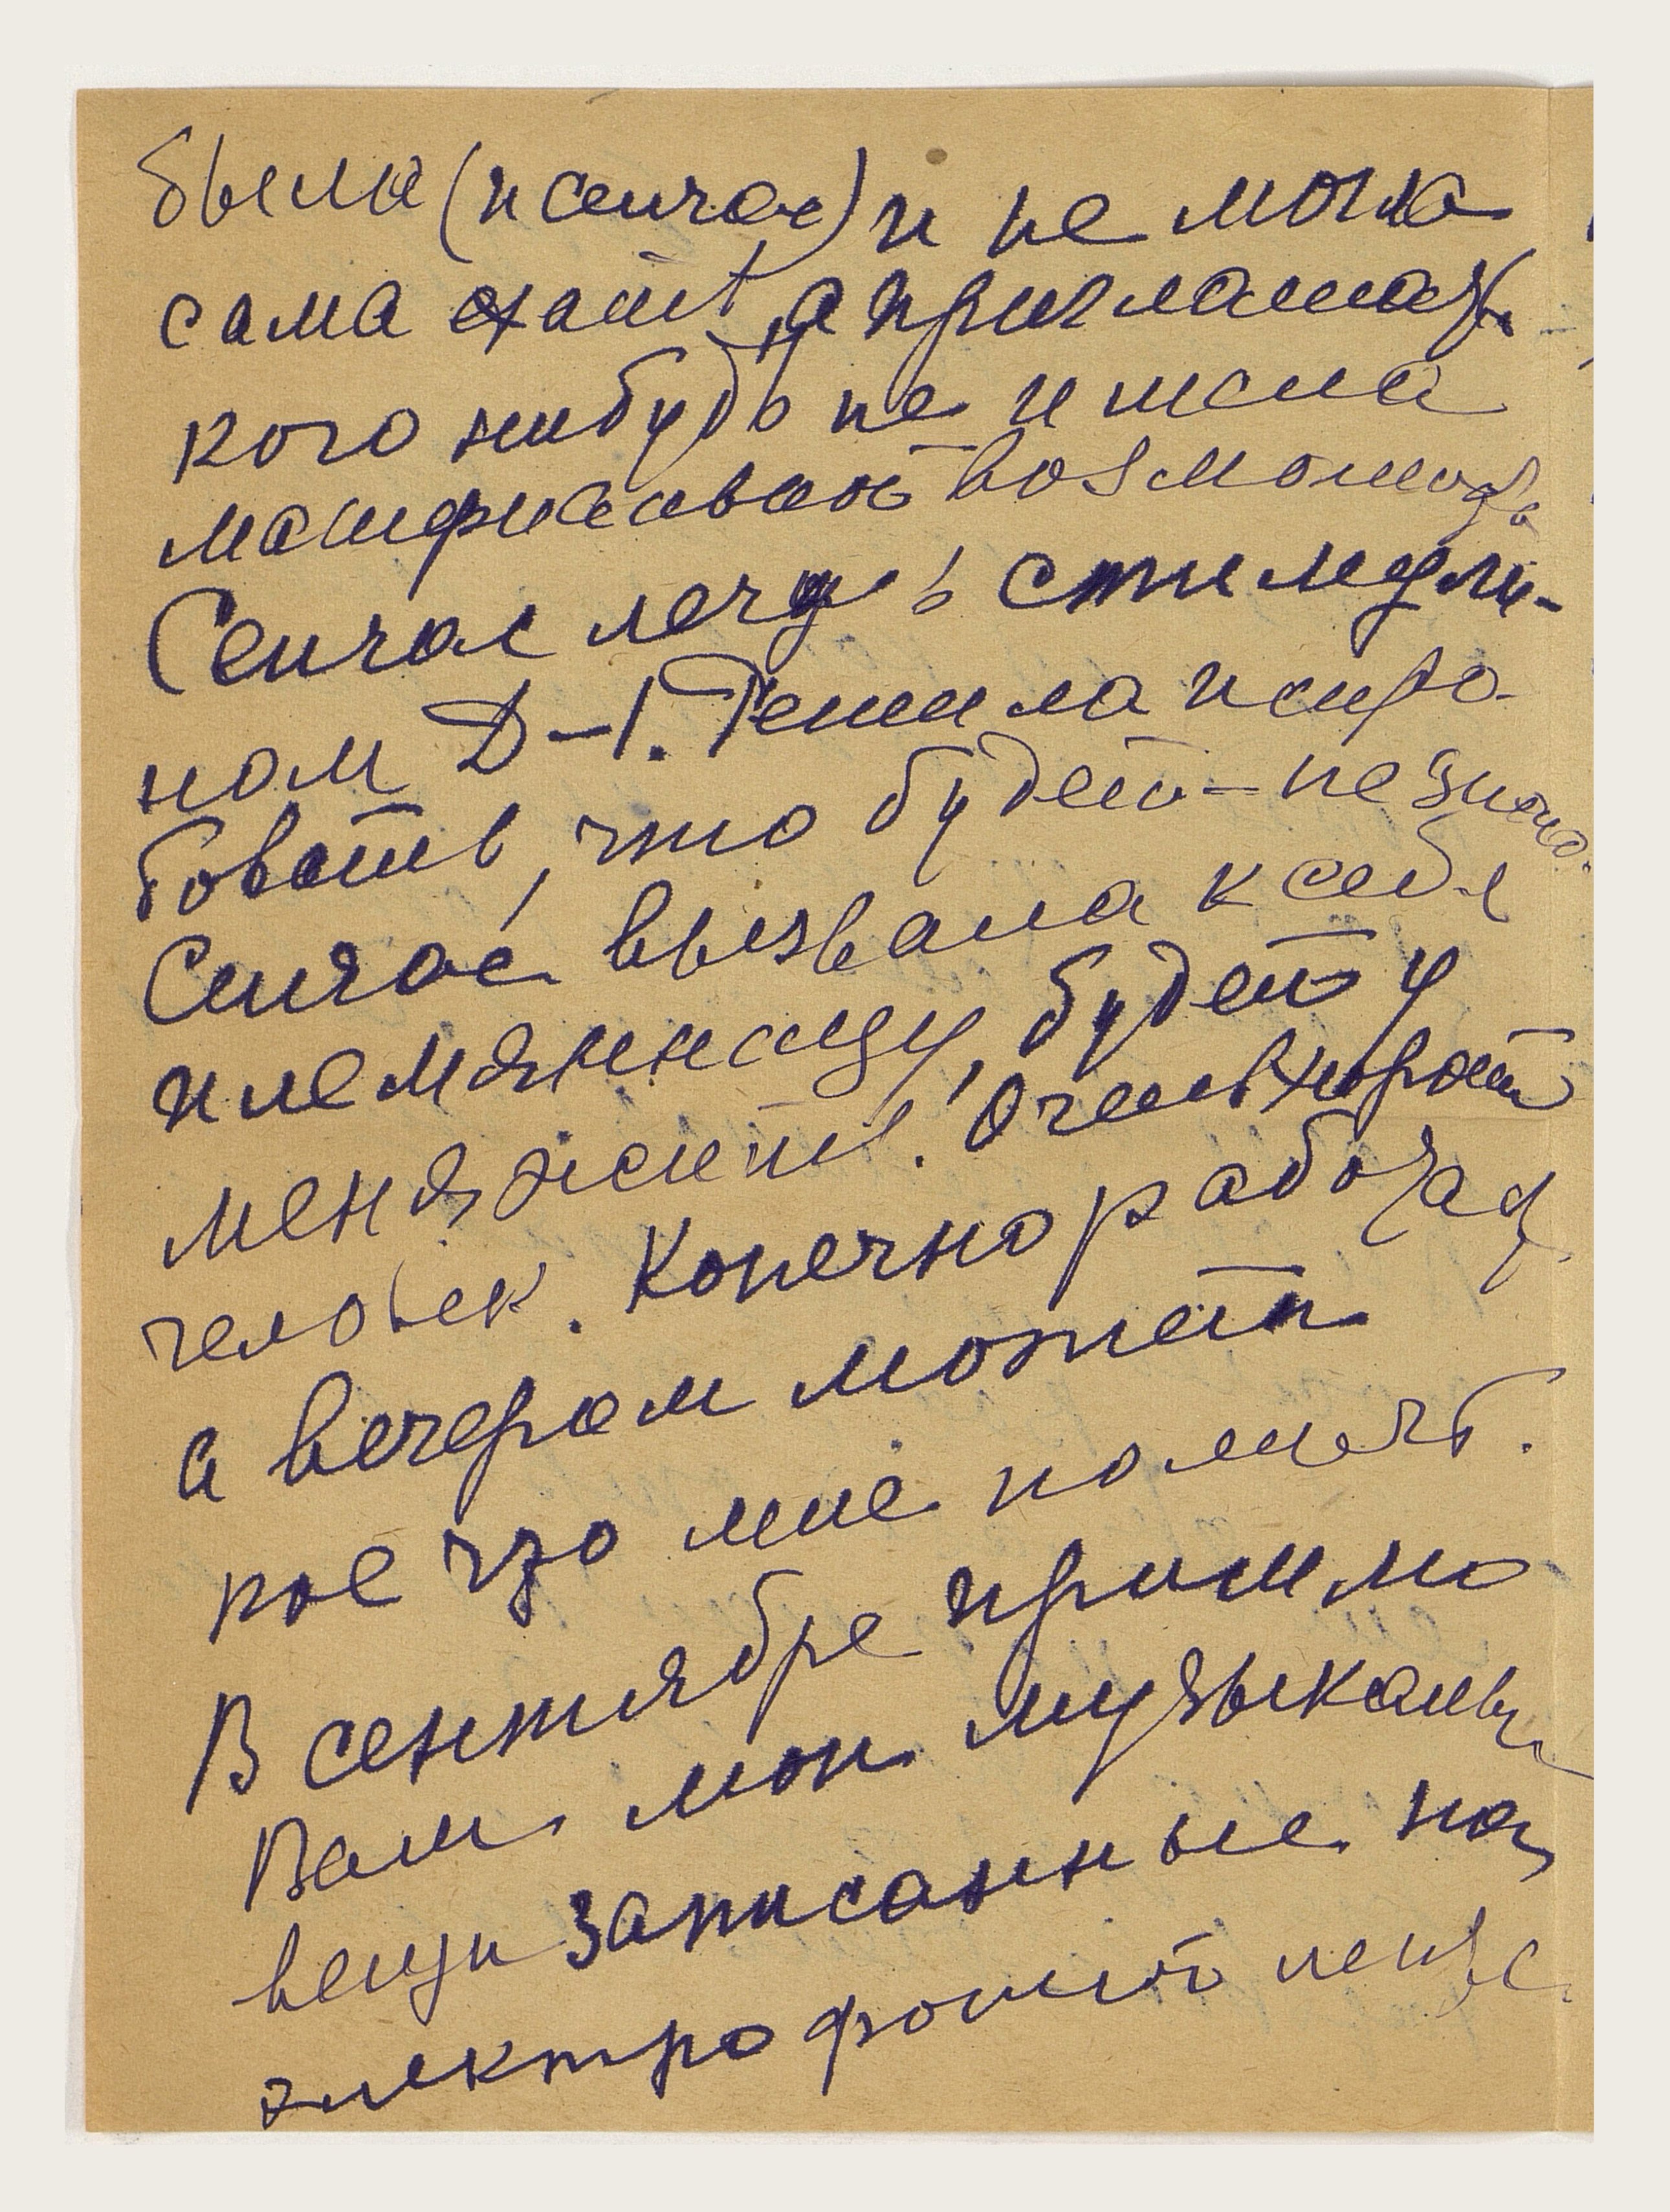 была (и сейчас) и не могла
сама ехать, а приглашать
кого нибудь не имела
материальной возможность
Сейчас лечусь стимули-
ном Д-1. Решила испро-
бовать, что будет – не знаю.
Сейчас вызвала к себе
племянницу, будет у
меня жить. Очень хороший
человек. Конечно работает
а вечером может
кое что мне помочь.
В сентябре пришлю
Вам мои музыкальн
вещи записанные на
электрофонной ленте